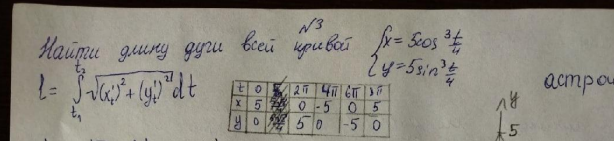 N3
Найти длину дуги всей кривой { x = 5cos³ t/4
{ y = 5sin³ t/4
l = ∫ₜ₁^ₜ₂ √((x'ₜ)² + (y'ₜ)²) dt
t 0 2π 4π 6π 8π
x 5 0 -5 0 5
y 0 5 0 -5 0
астрои
y
5